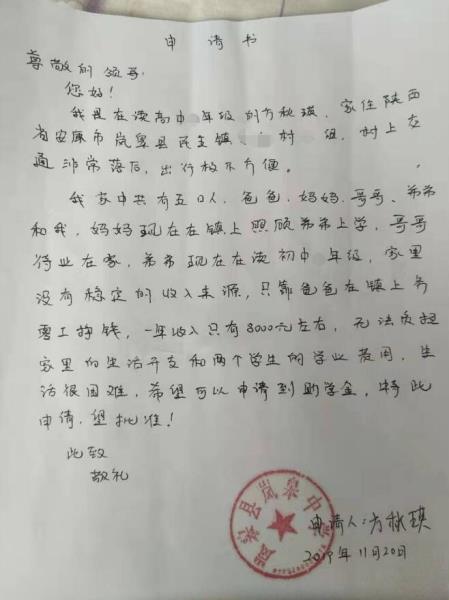 申请书
尊敬的领导:
您好!
我是在读高中 年级的方秋琪,家住陕西
省安康市岚皋县民主镇 村 组,村上交
通非常落后,出行极不方便。
我家中共有五口人,爸爸、妈妈、哥哥、弟弟
和我,妈妈现在在镇上照顾弟弟上学,哥哥
待业在家,弟弟现在在读初中 年级,家里
没有稳定的收入来源,只靠爸爸在镇上务
零工挣钱,一年收入只有8000元左右,无法负担
家里的生活开支和两个学生的学业费用,生
活很困难,希望可以申请到助学金,特此
申请,望批准!
此致
敬礼
岚皋县岚皋中学
申请人:方秋琪
2019年11月20日